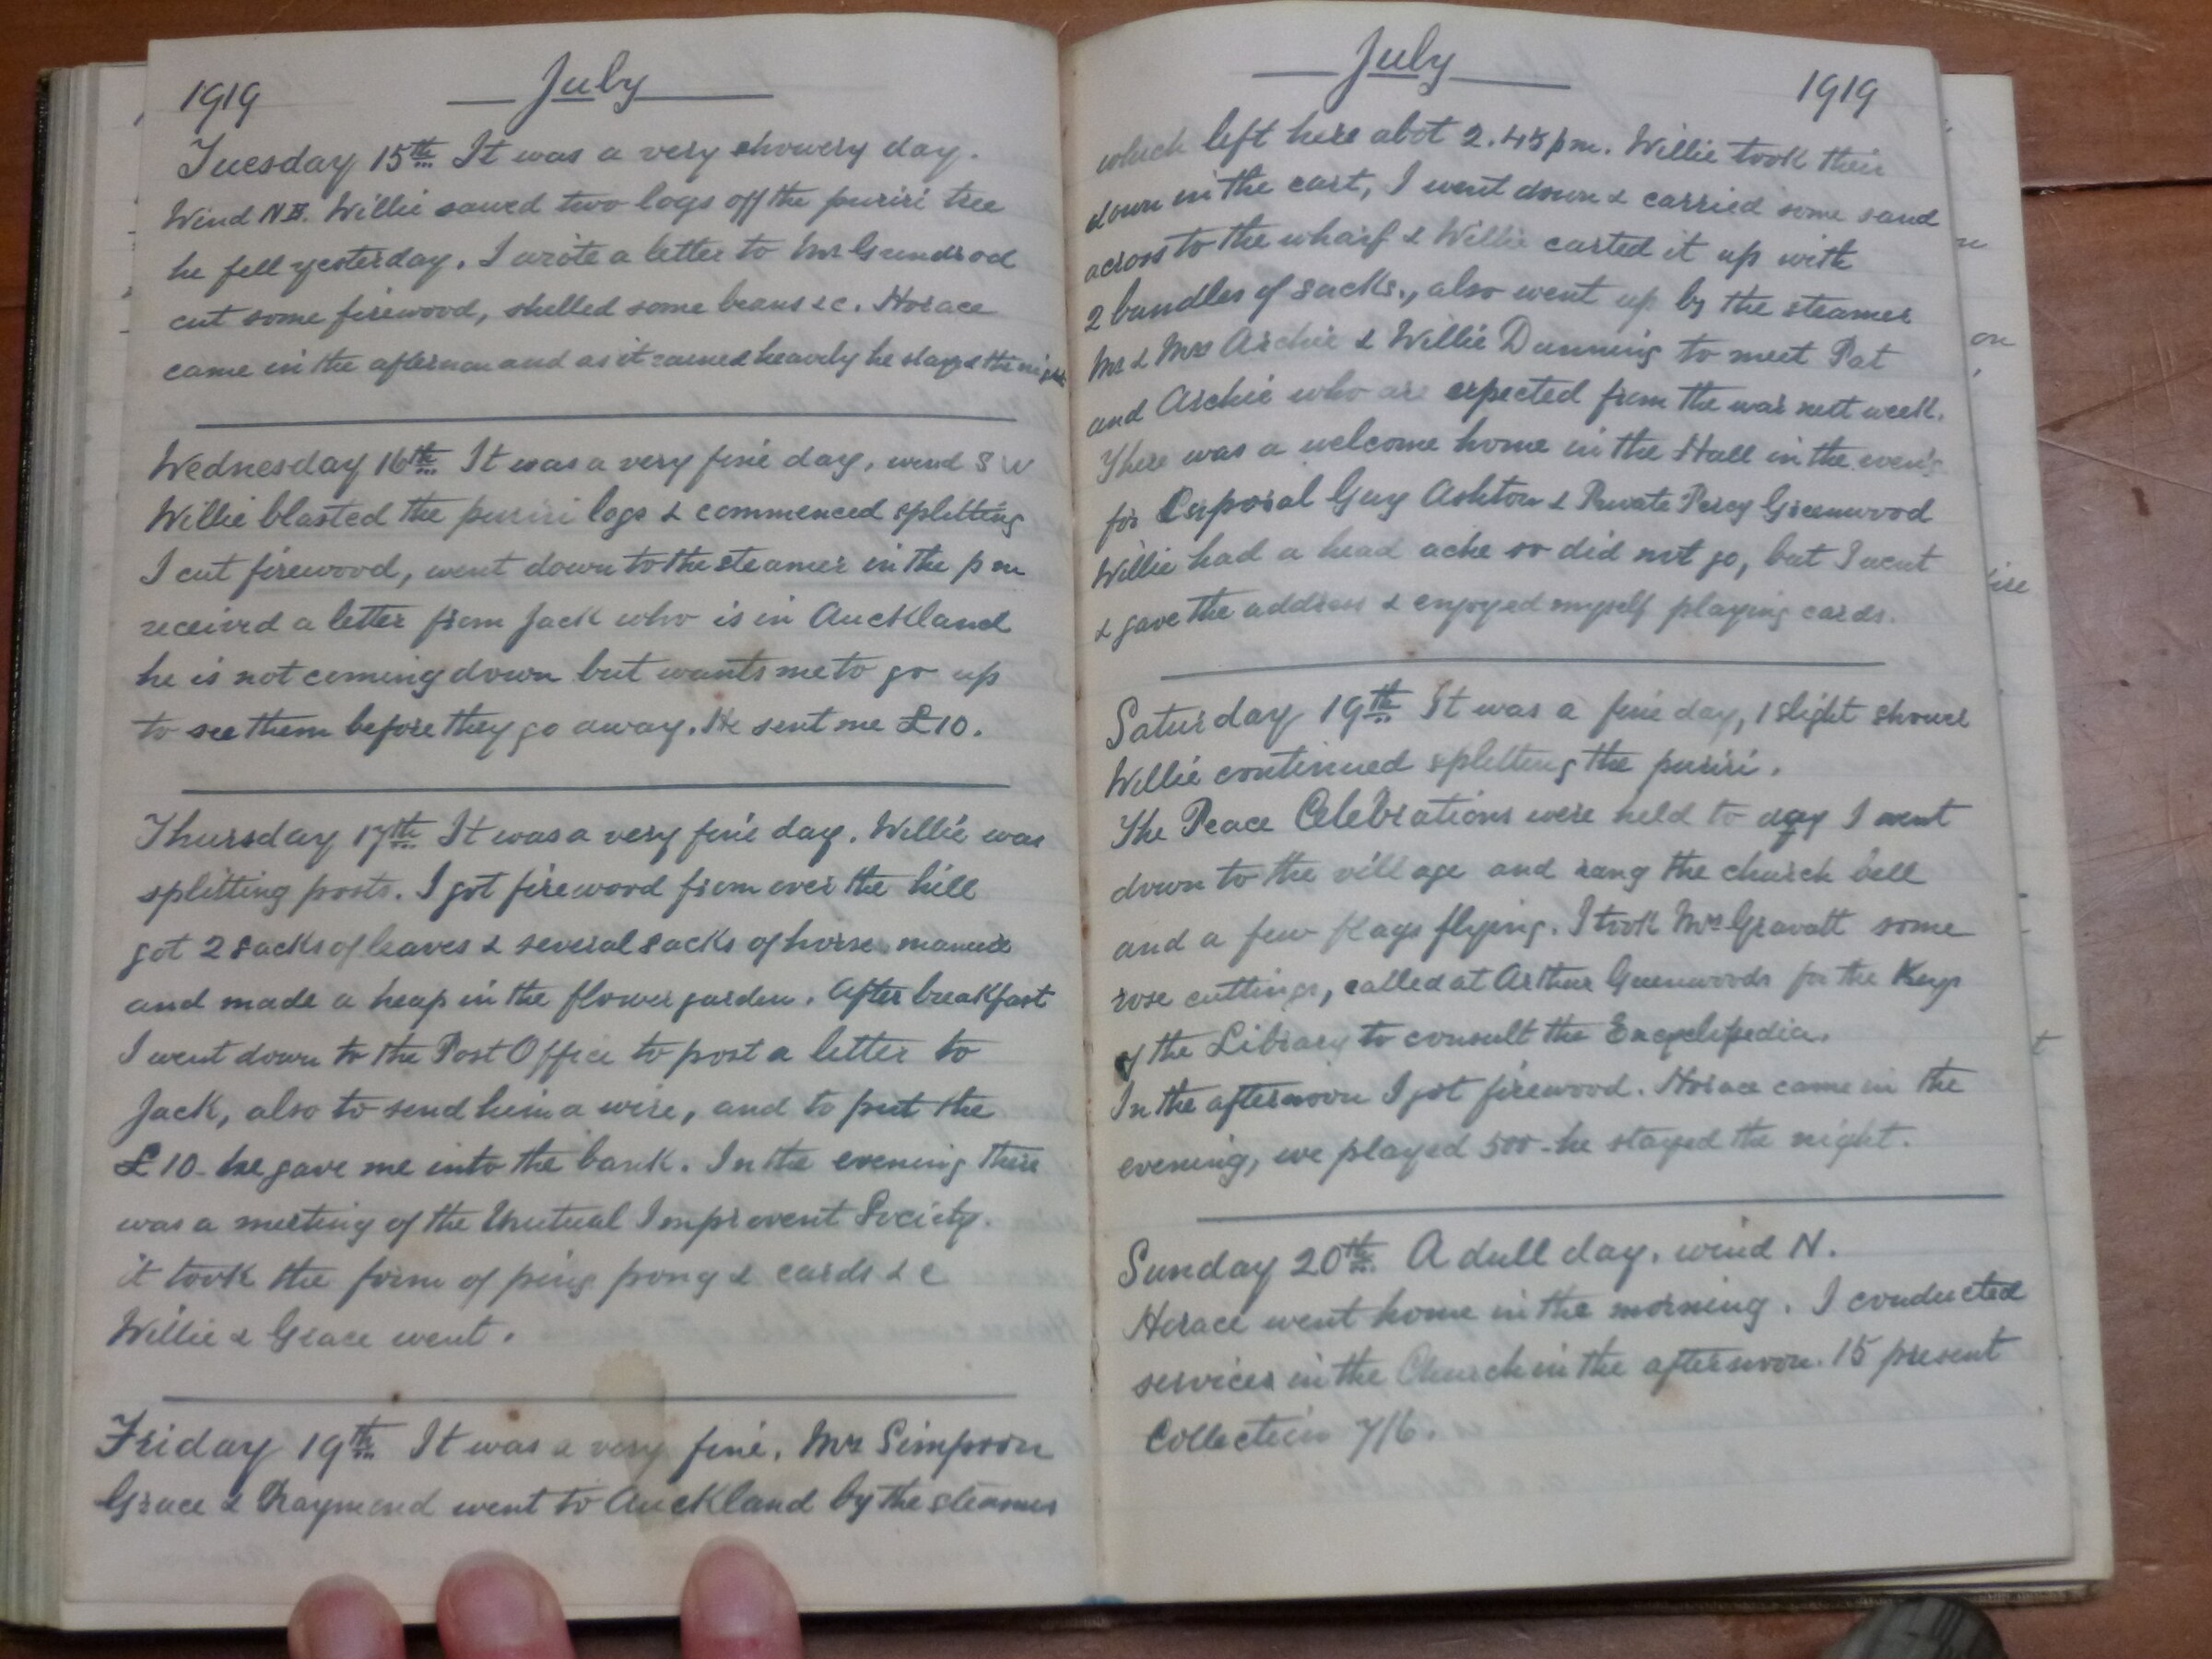 1919 July
Tuesday 15th It was a very showery day.
Wind NE. Willie sawed two logs off the puriri tree
he fell yesterday. I wrote a letter to Mr Gundrod
cut some firewood, shelled some beans &c. Horace
came in the afternoon and as it rained heavily he stayed the night
Wednesday 16th It was a very fine day, wind S W
Willie blasted the puriri logs & commenced splitting
I cut firewood, went down to the steamer in the pm
received a letter from Jack who is in Auckland
he is not coming down but wants me to go up
to see them before they go away. He sent me £10.
Thursday 17th It was a very fine day. Willie was
splitting posts. I got firewood from over the hill
got 2 sacks of leaves & several sacks of horse manure
and made a heap in the flower garden. After breakfast
I went down to the Post Office to post a letter to
Jack, also to send him a wire, and to put the
£10 he gave me into the bank. In the evening there
was a meeting of the Mutual Improvent Society.
it took the form of ping pong & cards & c
Willie & Grace went.
Friday 19th It was a very fine. Mr Simpson
Grace & Raymond went to Auckland by the steamer
July 1919
which left here abot 2.45pm. Willie took their
down in the cart, I went down & carried some sand
across to the wharf & Willie carted it up with
2 bundles of sacks., also went up by the steamer
Mr & Mrs Archie & Willie Dunning to meet Pat
and Archie who are expected from the war next week.
There was a welcome home in the Hall in the even'g
for Corporal Guy Ashton & Private Percy Greenwood
Willie had a head ache so did not go, but I went
& gave the address & enjoyed myself playing cards.
Saturday 19th It was a fine day, 1 slight shower
Willie continued splitting the puriri.
The Peace Celebrations were held to day I went
down to the village and rang the church bell
and a few flags flying. I took Mrs Gravatt some
rose cuttings, called at Arthur Greenwoods for the Keys
of the Library to consult the Encyclipedia.
In the afternoon I got firewood. Horace came in the
evening, we played 500 - he stayed the night.
Sunday 20th A dull day. wind N.
Horace went home in the morning. I conducted
services in the Church in the afternoon. 15 present
Collection 7/6.